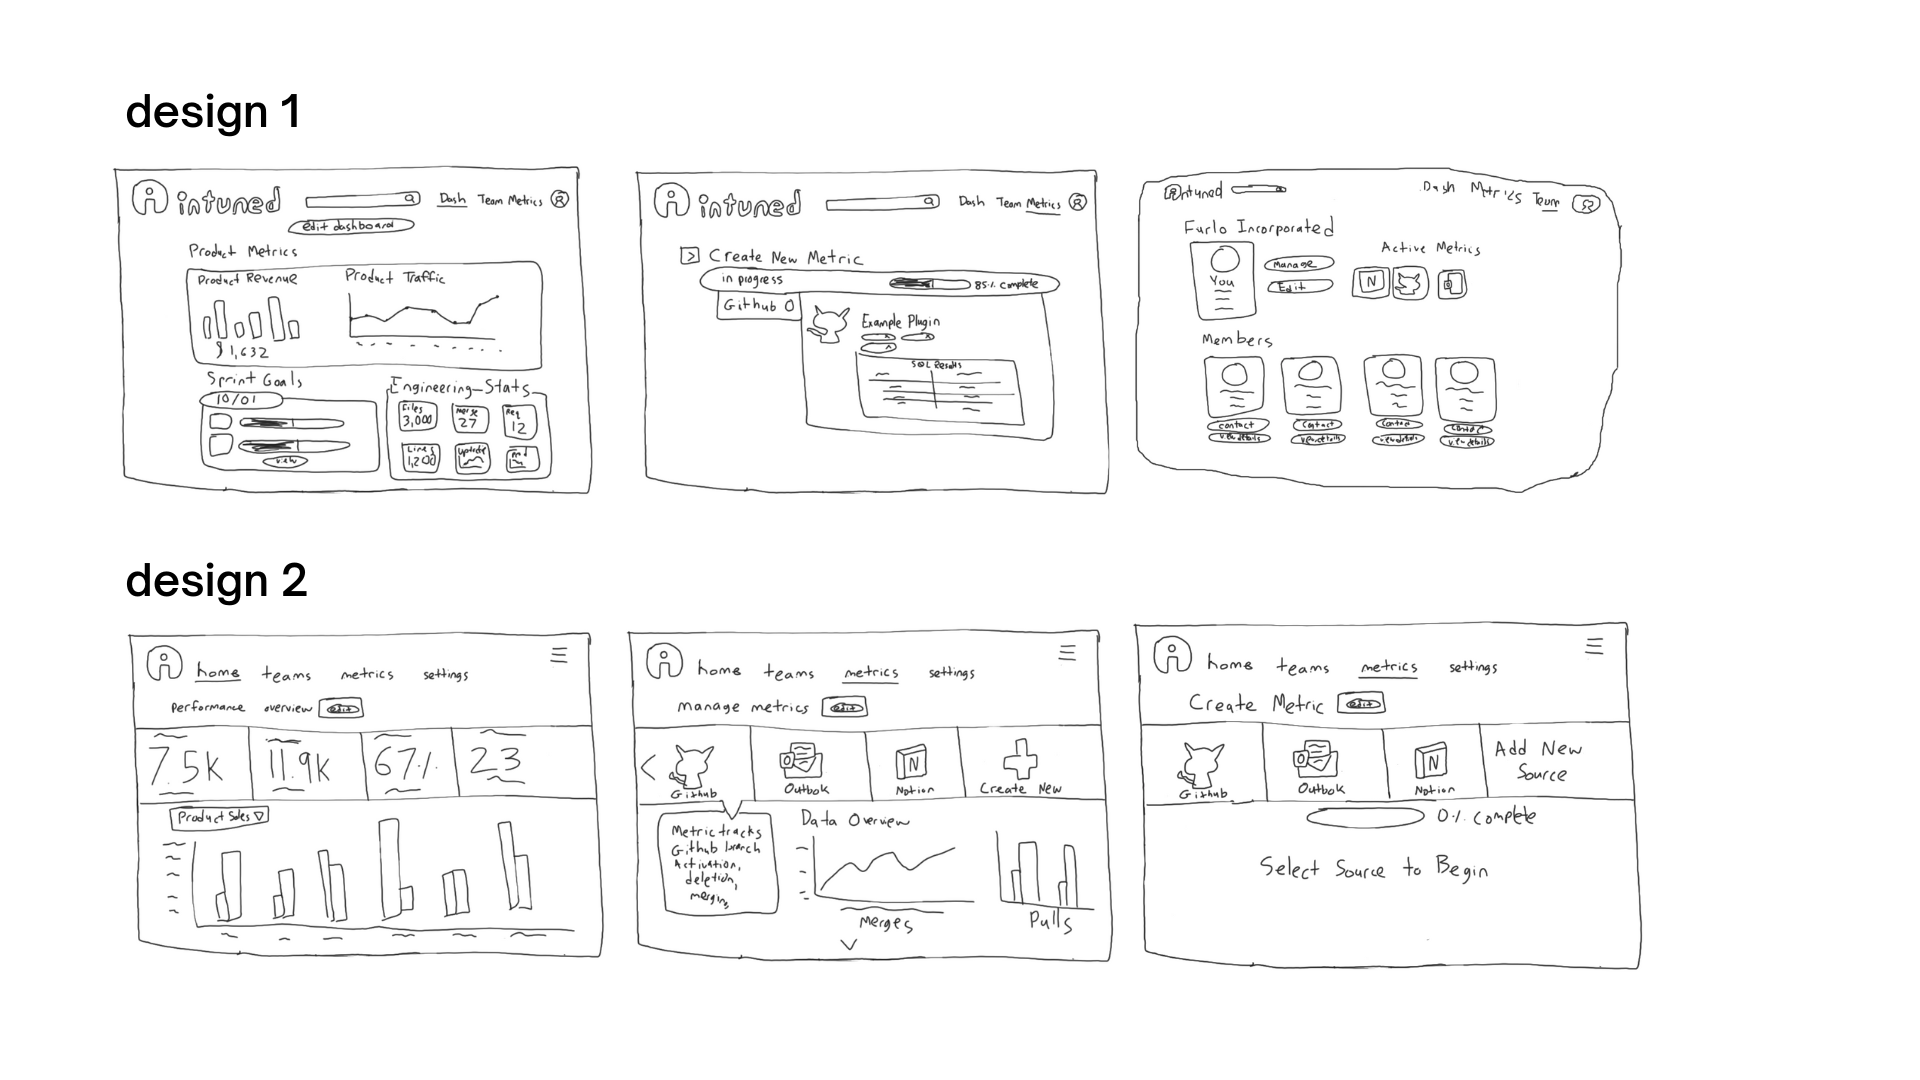 design 1
intuned
Dash Team Metrics
edit dashboard
Product Metrics
Product Revenue
Product Traffic
$1,632
Sprint Goals
10/01
view
Engineering Stats
Files 3,000
Merge 27
Req 12
Lines 1,200
update
intuned
Dash Team Metrics
Create New Metric
in progress
85% complete
Github
Example Plugin
SQL Results
intuned
Dash Metrics Team
Furlo Incorporated
You
Manage
Edit
Active Metrics
N
Members
contact
view details
contact
view details
contact
view details
contact
view details
design 2
home teams metrics settings
Performance overview edit
7.5K 11.9K 67% 23
Product Sales
home teams metrics settings
manage metrics edit
Github Outlook Notion Create New
N
Metric tracks
Github branch
Activation,
deletion,
merging
Data Overview
Merges
Pulls
home teams metrics settings
Create Metric edit
Github Outlook Notion
N
Add New
Source
0% Complete
Select Source to Begin